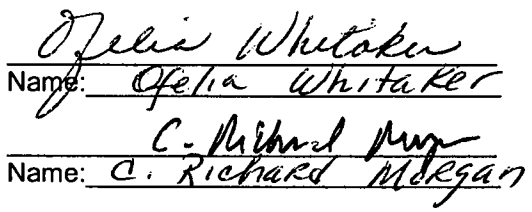 Ofelia Whitaker
Name: Ofelia Whitaker
C. Richard Morgan
Name: C. Richard Morgan